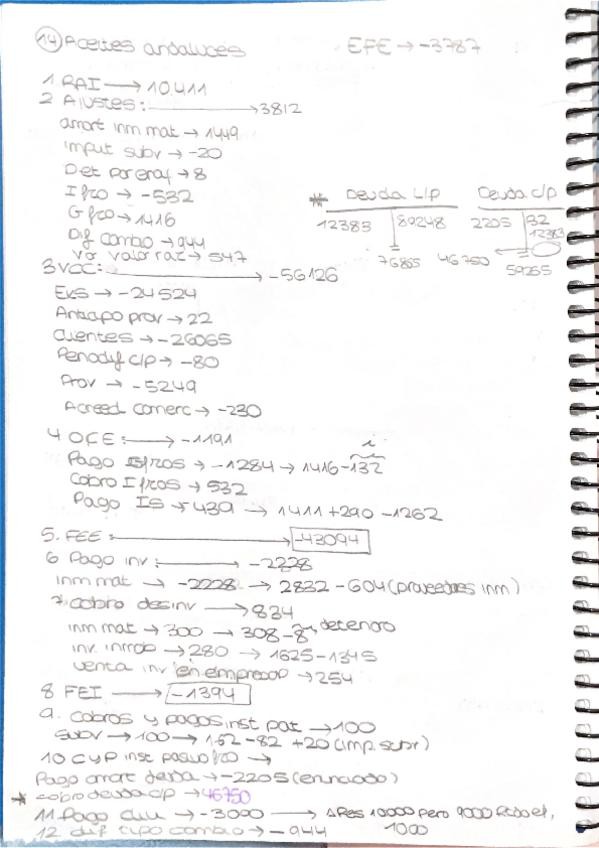 14 Aceites andaluces EFE → -3787
1 RAI → 10.411
2 Ajustes: → 3812
amort inm mat → 1449
imput subv → -20
Det por enaj → 8
I fro → -532
G fro → 1416
Dif cambio → 944
var valor raz → 547
* Deuda L/P Deuda C/P
12383 89248 2205 32
12383
76865 46750 59265
3 VCC: → -56126
Exs → -24524
Anticipo prov → 22
Clientes → -26065
Periodif c/p → -80
Prov → -5249
Acreed comerc → -230
4 OFE: → -1191
i
Pago Gfros → -1284 → 1416-132
Cobro I fros → 532
Pago IS → -439 → 1411 +290 -1262
5. FEE: → -43094
6 Pago inv: → -2228
inm mat → -2228 → 2832 - 604 (proveedores inm)
7. cobro desinv → 834
inm mat → 300 → 308-8 deterioro
inv. inmob → 280 → 1625-1345
venta inv en empresas → 254
8 FEI → -1394
9. cobros y pagos inst pat → 100
Subv → 100 → 162 -82 +20 (imp. subv)
10 CyP inst pasivo fro →
Pago amort deuda → -2205 (enunciado)
* cobro deuda c/p → 46750
11 Pago duu → -3000 → Δ Res 10000 pero 9000 Rtdo ej,
1000
12 dif tipo cambio → -944